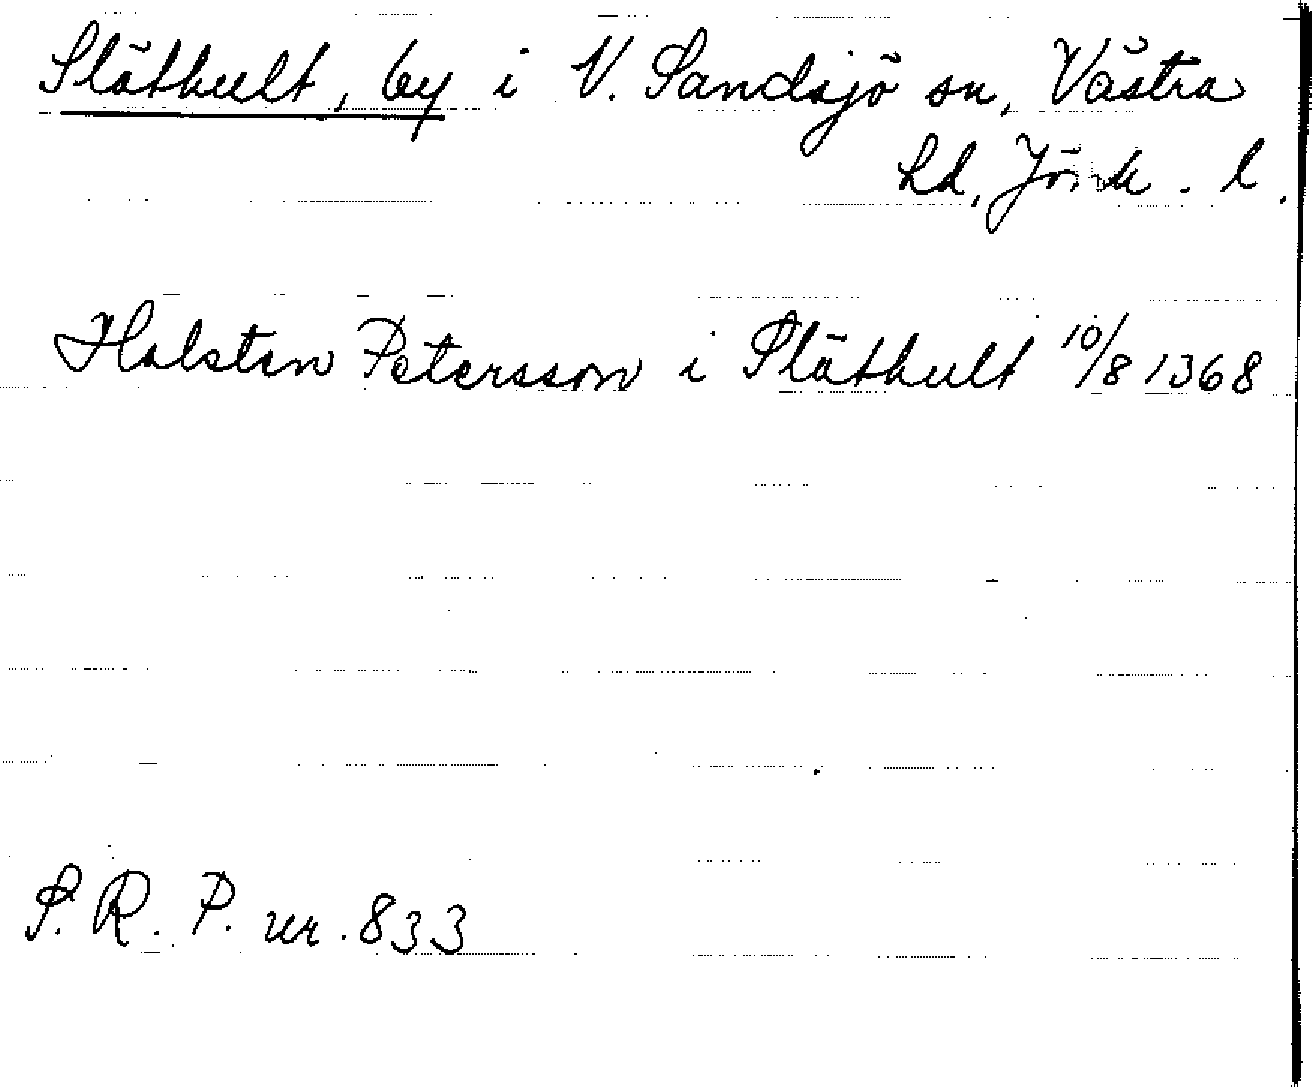 Släthult, by i V. Sandsjö sn, Västra
hd, Jönk. l.
Holsten Petersson i Släthult 10/8 1368
S. R. P. nr. 833